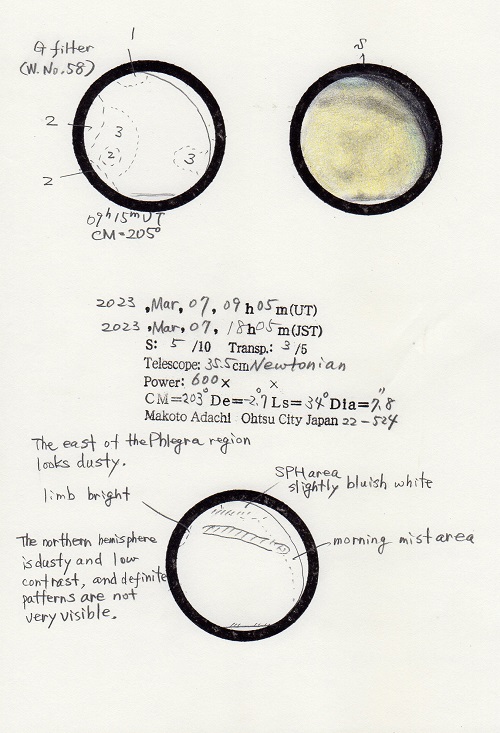 1
G filter
(W.No.58)
S
2
3
2
3
2
09h15mUT
CM=205°
2023 ,Mar, 07, 09h05m(UT)
2023 ,Mar, 07, 18h05m(JST)
S: 5 /10 Transp.: 3 /5
Telescope: 35.5cm Newtonian
Power: 600× ×
CM=203° De=-2.7° Ls=34° Dia=7.8"
Makoto Adachi Ohtsu City Japan 22-524
The east of the Phlegra region
looks dusty.
SPH area
slightly bluish white
limb bright
The northern hemisphere
is dusty and low
contrast, and definite
patterns are not
very visible.
morning mist area